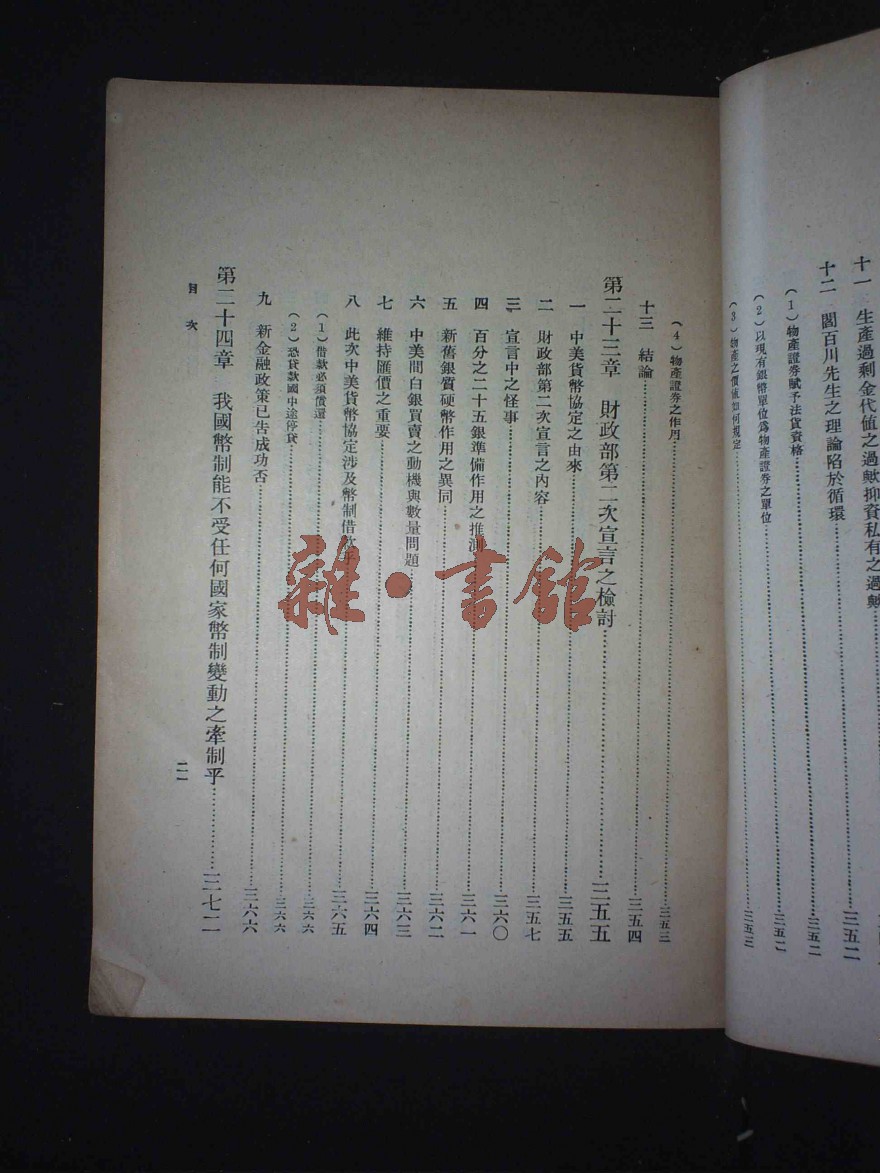 十一 生產過剩金代值之過歟抑資私有之過歟
十二 閻百川先生之理論陷於循環……三五二
(1)物產證券賦予法貨資格……三五二
(2)以現有銀幣單位為物產證券之單位……三五二
(3)物產之價值如何規定……三五三
(4)物產證券之作用……三五三
十三 結論……三五四
第二十三章 財政部第二次宣言之檢討……三五五
一 中美貨幣協定之由來……三五五
二 財政部第二次宣言之內容……三五七
三 宣言中之怪事……三六〇
四 百分之二十五銀準備作用之推測……三六一
五 新舊銀質硬幣作用之異同……三六二
六 中美間白銀買賣之動機與數量問題……三六三
七 維持匯價之重要……三六四
八 此次中美貨幣協定涉及幣制借款……三六五
(1)借款必須償還……三六六
(2)恐貸款國中途停貸……三六六
九 新金融政策已告成功否……三六六
第二十四章 我國幣制能不受任何國家幣制變動之牽制乎……三七二
目次
二一
雜·書館